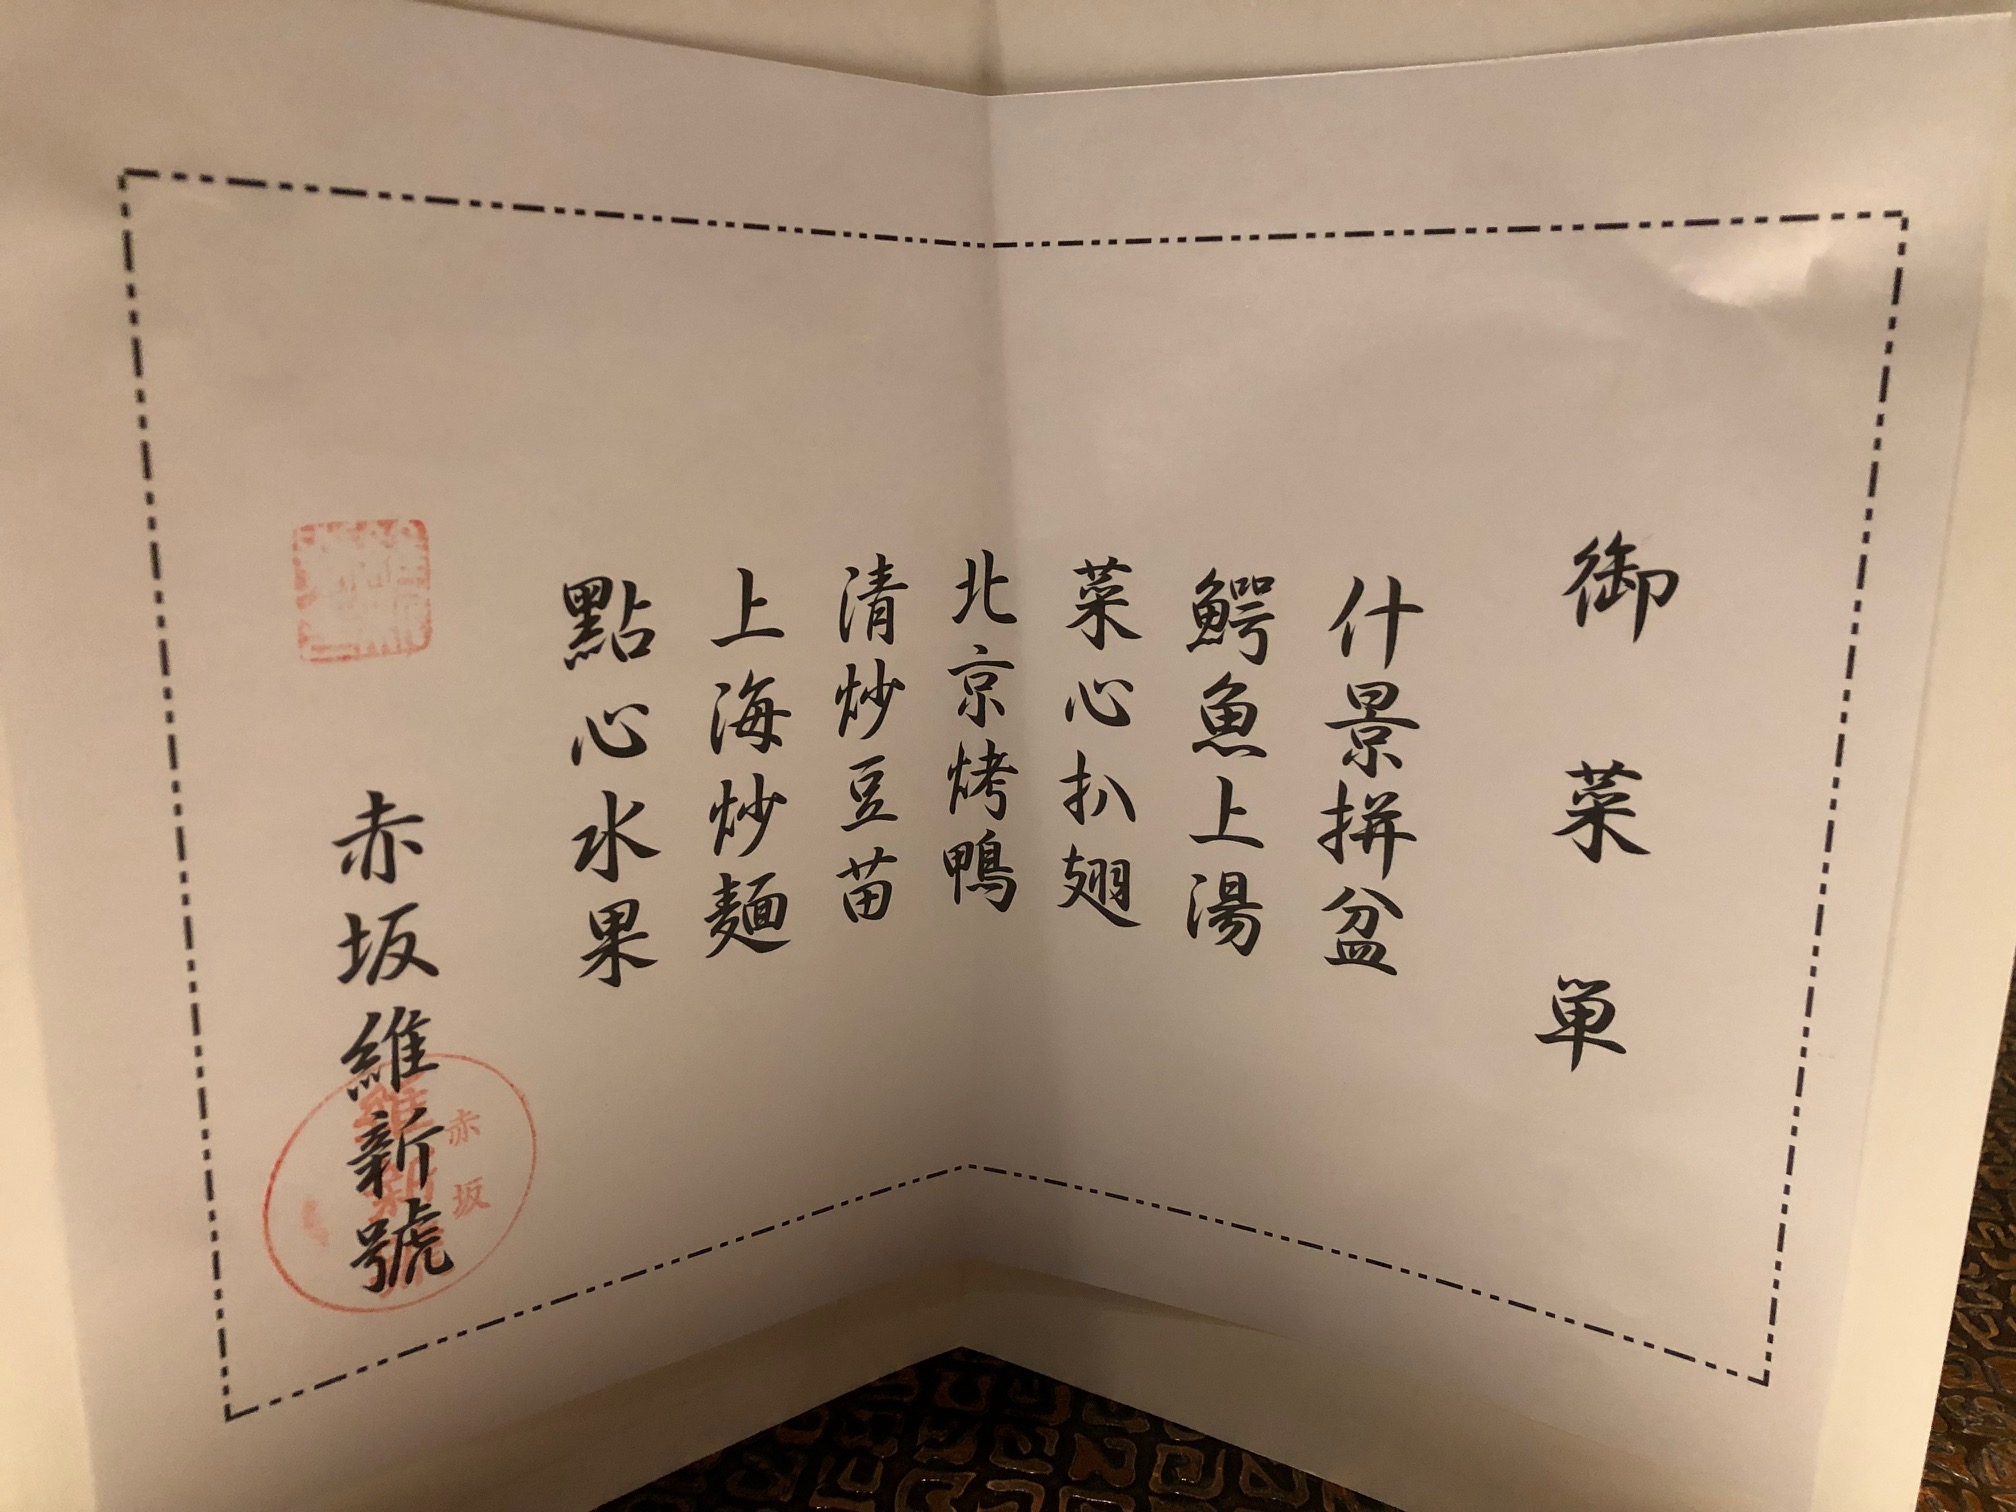 御菜単
什景拼盆
鰐魚上湯
菜心扒翅
北京烤鴨
清炒豆苗
上海炒麺
點心水果
赤坂維新號
赤坂
維新號